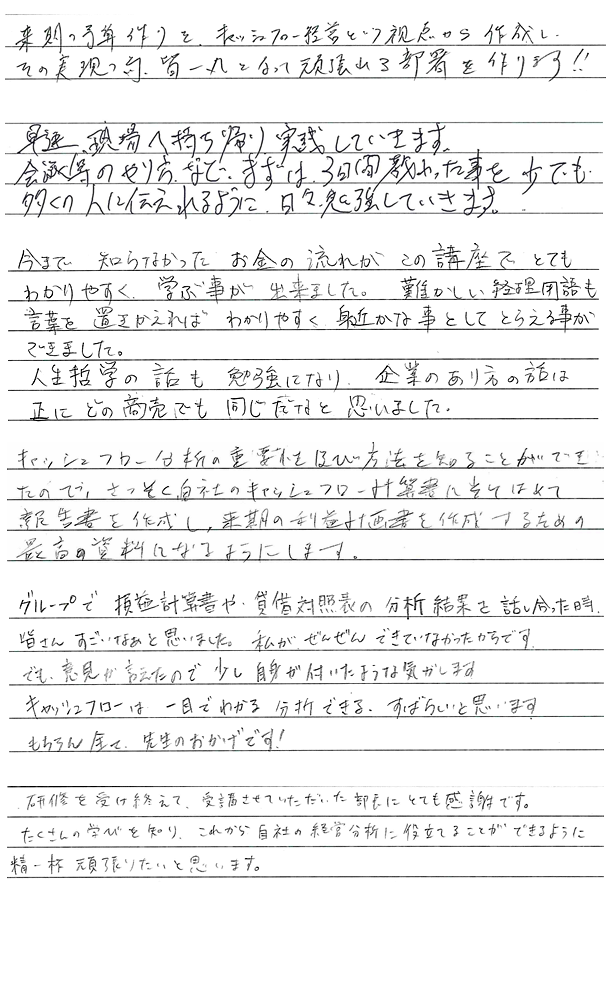 来期の予算作りを、キャッシュフロー経営という視点から作成し、
その実現の為、皆一丸となって頑張れる部署を作ります!!
早速、現場へ持ち帰り、実践していきます。
会議等のやり方など、まずは、3日間教わった事を少でも
多くの人に伝えれるように、日々勉強していきます。
今まで 知らなかった お金の流れが この講座で とても
わかりやすく、学ぶ事が 出来ました。 難かしい経理用語も
言葉を 置きかえれば わかりやすく 身近かな事として とらえる事が
できました。
人生哲学の話も 勉強になり、企業のあり方の話は
正に どの商売でも 同じだなと 思いました。
キャッシュフロー分析の重要性及び方法を知ることができ
たので、さっそく自社のキャッシュフロー計算書に当てはめて
報告書を作成し、来期の利益計画書を作成するための
最高の資料になるようにします。
グループで 損益計算書や、貸借対照表の 分析結果を 話し合った時、
皆さん すごいなあと思いました。 私が ぜんぜん できていなかったからです。
でも、意見が 言えたので 少し 自身が 付いたような気がします
キャッシュフローは 一目でわかる 分析できる、すばらいと思います
もちろん 全て、先生のおかげです!
研修を受け終えて、受講させていただいた 部長に とても感謝です。
たくさんの学びを知り、これから 自社の経営分析に役立てることができるように
精一杯 頑張りたいと思います。